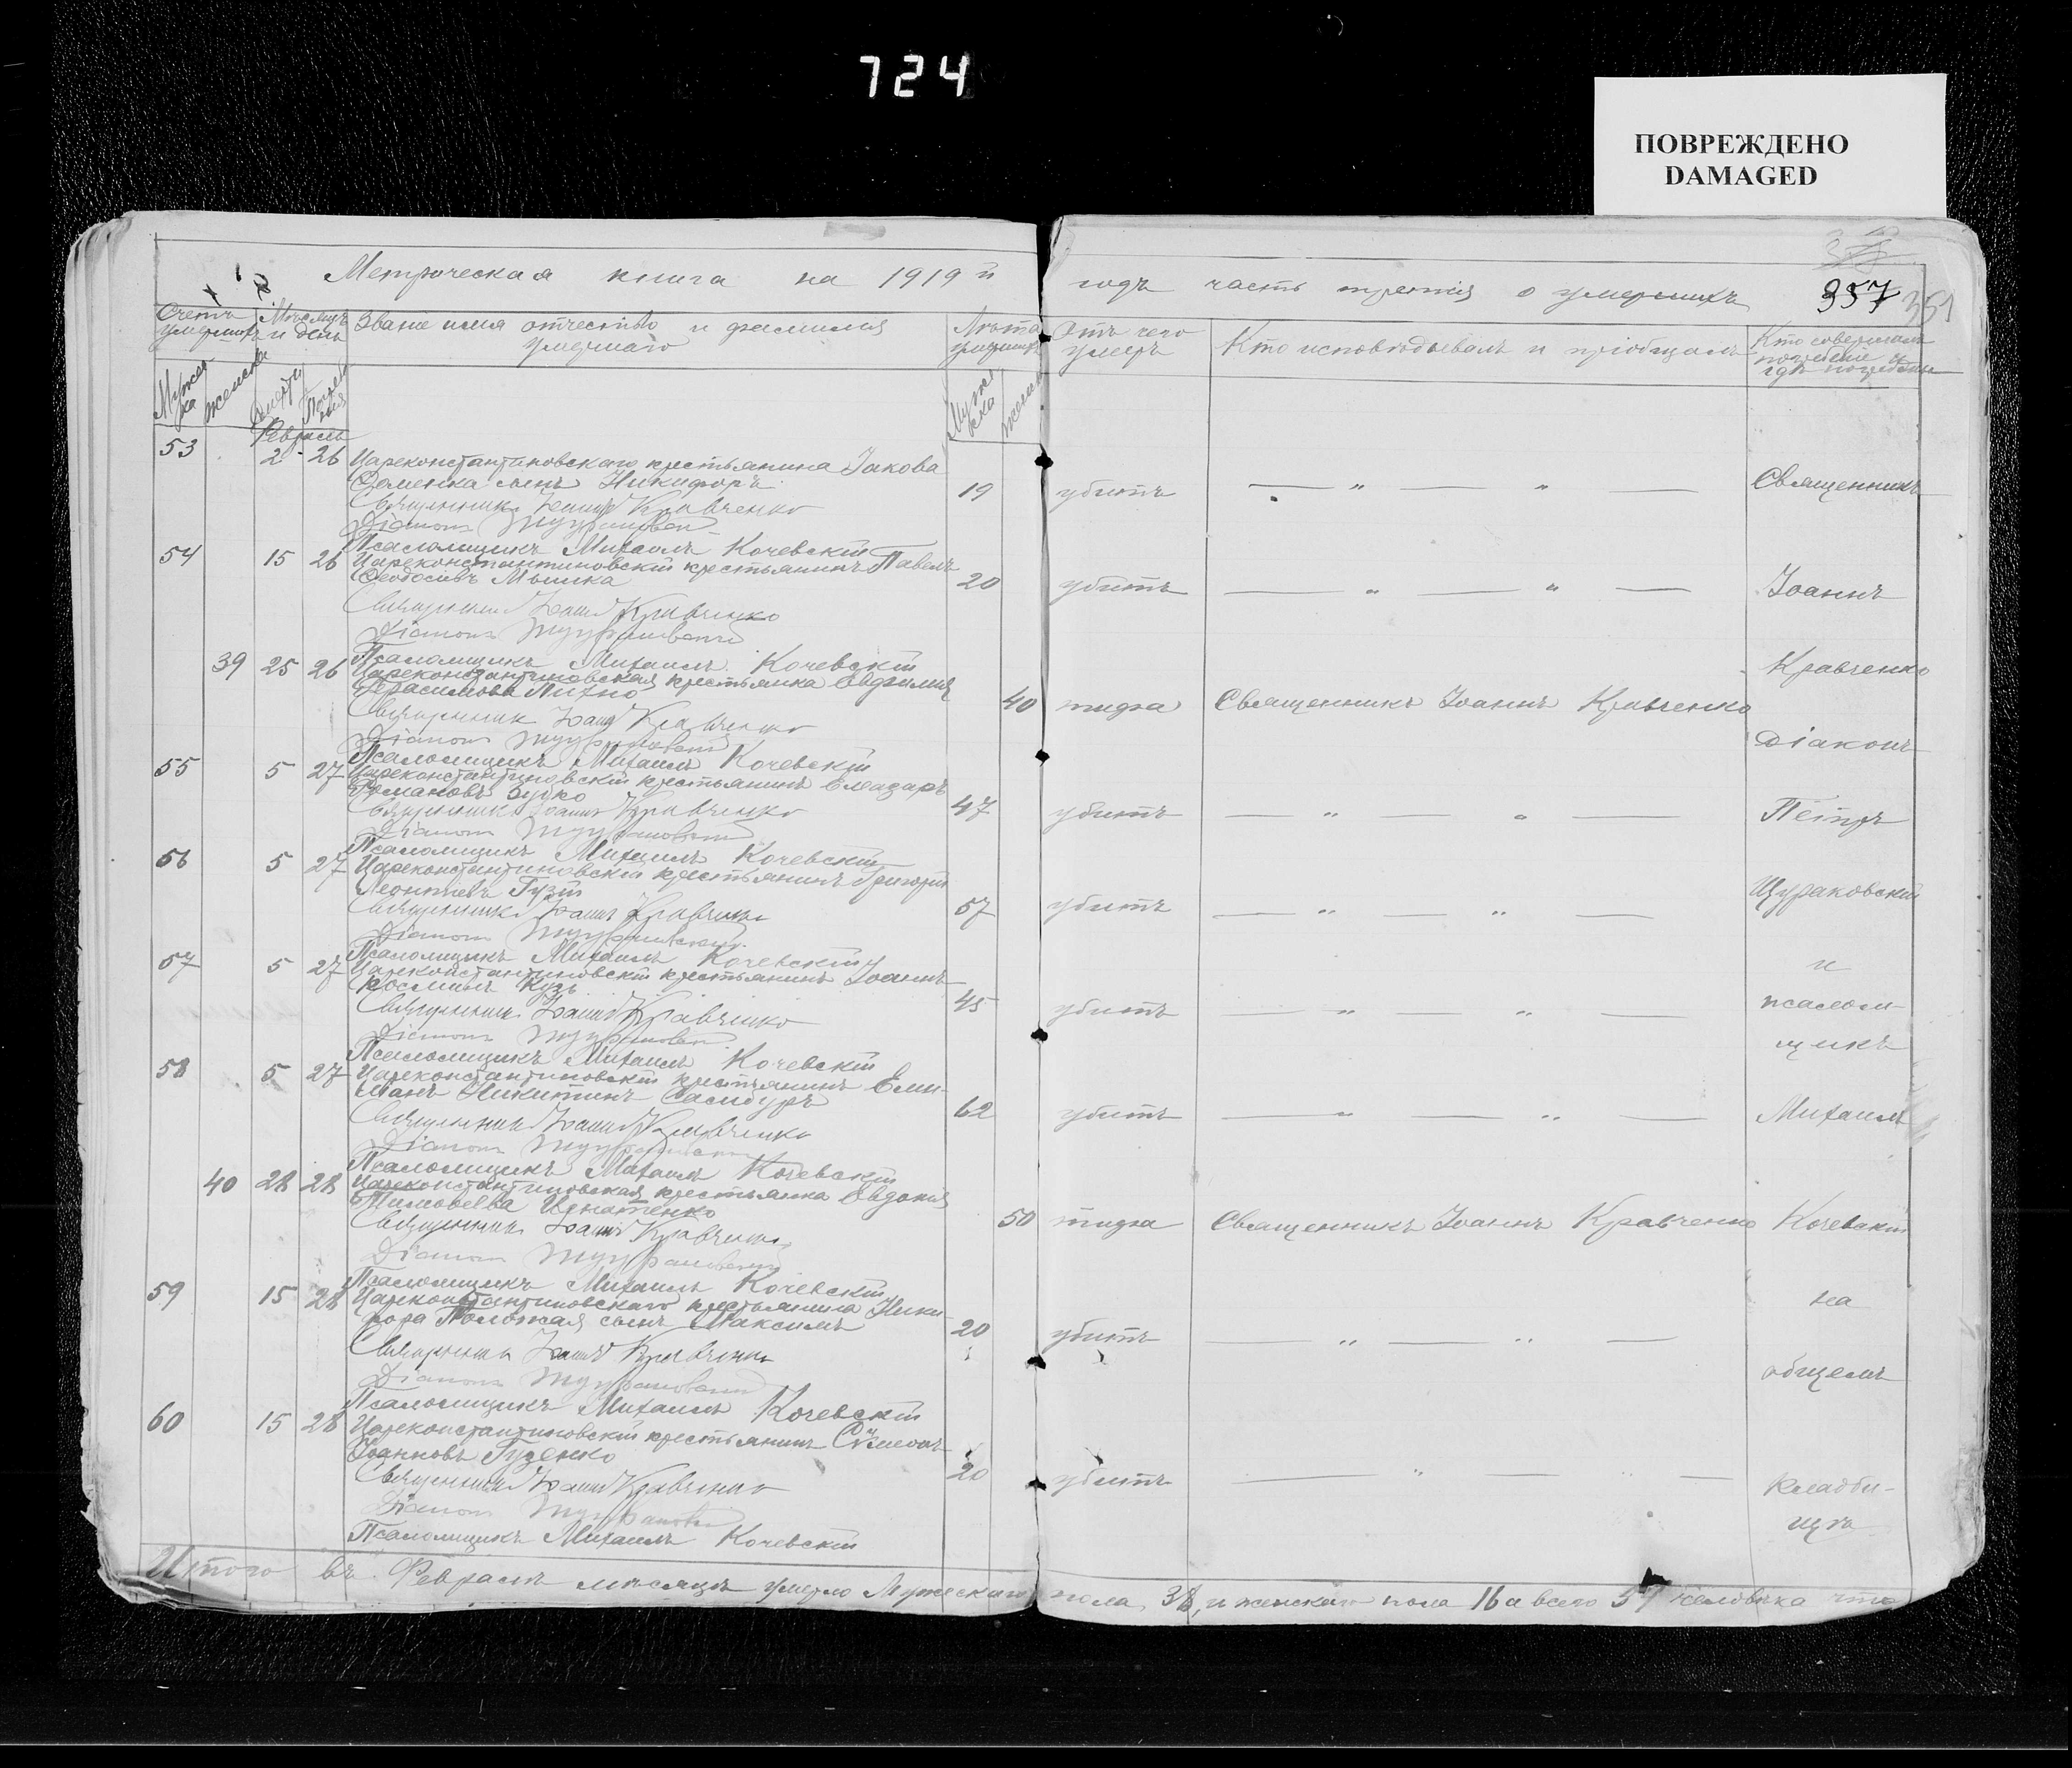 724
ПОВРЕЖДЕНО
DAMAGED
Метрическая книга на 1919 й годъ часть третія о умершихъ
357
351
Счетъ умершихъ
Мѣсяцъ и день
Званіе имя отчество и фамилия умершаго
Лѣта умершихъ
Отъ чего умеръ
Кто исповѣдывалъ и пріобщалъ
Кто совершалъ погребеніе и гдѣ погребены
Мужеска
женска
смерти
Погребения
Мужеска
женска
Февраль
53 2 26 Цареконстантиновскаго крестьянина Іакова
Семенка сынъ Никифоръ 19 убитъ — " — " — Священникъ
Священникъ Іоаннъ Кравченко
Діаконъ Щураковскій
Псаломщикъ Михаилъ Кочевскій
54 15 26 Цареконстантиновскій крестьянинъ Павелъ
Ѳеодосіевъ Мышка 20 убитъ — " — " — Іоаннъ
Священникъ Іоаннъ Кравченко
Діаконъ Щураковскій
Псаломщикъ Михаилъ Кочевскій
39 25 26 Цареконстантиновская крестьянка Евфимия Кравченко
Герасимова Пихно 40 тифа Священникъ Іоаннъ Кравченко
Священникъ Іоаннъ Кравченко
Діаконъ Щураковскій Діаконъ
Псаломщикъ Михаилъ Кочевскій
55 5 27 Цареконстантиновскій крестьянинъ Елеазаръ
Романовъ Зубко 47 убитъ — " — " — Петръ
Священникъ Іоаннъ Кравченко
Діаконъ Щураковскій
Псаломщикъ Михаилъ Кочевскій
56 5 27 Цареконстантиновскій крестьянинъ Григорій
Леонтіевъ Гузій 57 убитъ — " — " — Щураковскій
Священникъ Іоаннъ Кравченко
Діаконъ Щураковскій
Псаломщикъ Михаилъ Кочевскій
57 5 27 Цареконстантиновскій крестьянинъ Іоаннъ и
Косминъ Кузь 45 убитъ — " — " — псалом-
Священникъ Іоаннъ Кравченко
Діаконъ Щураковскій щикъ
Псаломщикъ Михаилъ Кочевскій
58 5 27 Цареконстантиновскій крестьянинъ Ели-
Никитинъ Самбуръ 62 убитъ — " — " — Михаилъ
Священникъ Іоаннъ Кравченко
Діаконъ Щураковскій
Псаломщикъ Михаилъ Кочевскій
40 28 28 Цареконстантиновская крестьянка Евдокія
Тимоѳеева Игнатенко 50 тифа Священникъ Іоаннъ Кравченко Кочевскій
Священникъ Іоаннъ Кравченко
Діаконъ Щураковскій
Псаломщикъ Михаилъ Кочевскій
59 15 28 Цареконстантиновскаго крестьянина Ники- на
фора сынъ Максимъ 20 убитъ — " — " —
Священникъ Іоаннъ Кравченко
Діаконъ Щураковскій общемъ
Псаломщикъ Михаилъ Кочевскій
60 15 28 Цареконстантиновскій крестьянинъ Сѵмеонъ
Іоанновъ Гузенко 20 убитъ — " — " — кладби-
Священникъ Іоаннъ Кравченко
Діаконъ Щураковскій щѣ
Псаломщикъ Михаилъ Кочевскій
Итого въ Февралѣ мѣсяцѣ умерло Мужескаго пола 38, и женскаго пола 16 а всего 54 человѣка что